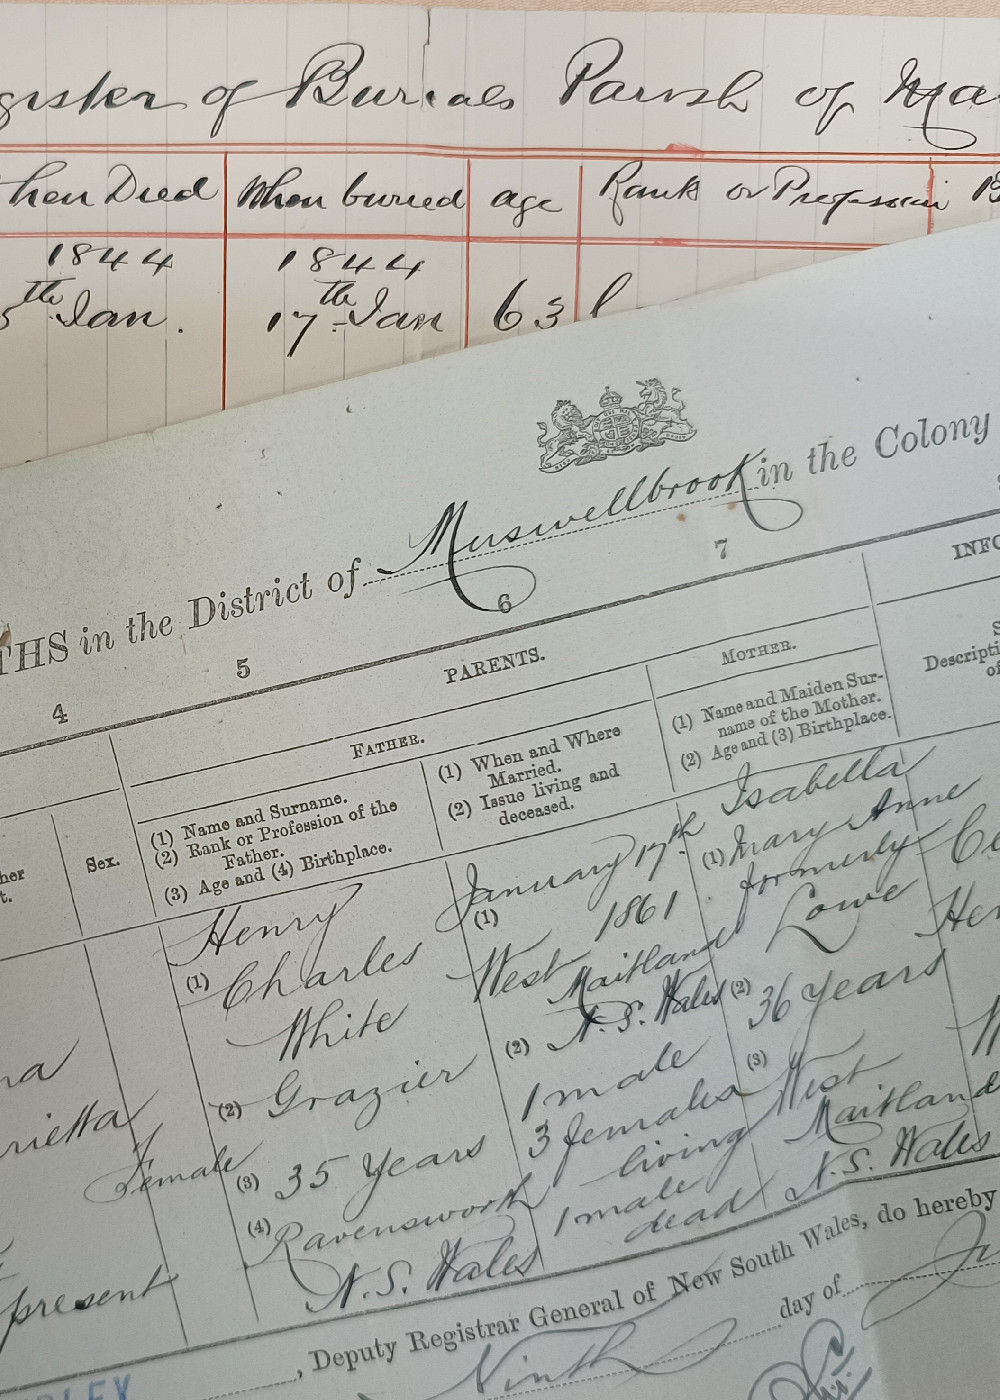 gister of Burials Parish of Ma
hen Died When buried age Rank or Profession
1844 1844
5th Jan. 17th Jan 63
THS in the District of Muswellbrook in the Colony
4 5 6 7
PARENTS. INFO
FATHER. MOTHER.
her
t.
Sex.
(1) Name and Surname.
(2) Rank or Profession of the
Father.
(3) Age and (4) Birthplace.
(1) When and Where
Married.
(2) Issue living and
deceased.
(1) Name and Maiden Sur-
name of the Mother.
(2) Age and (3) Birthplace.
Descripti
of
na
rietta
present
Female
Henry
(1) Charles
White
(2) Grazier
(3) 35 Years
(4) Ravensworth
N.S. Wales
January 17th
(1) 1861
West Maitland
N.S. Wales
(2) 1 male
3 females
living
1 male
dead
Isabella
(1) Mary Anne
formerly
Lowe
(2) 36 Years
(3) West
Maitland
N.S. Wales
Hen
, Deputy Registrar General of New South Wales, do hereby
Ninth day of